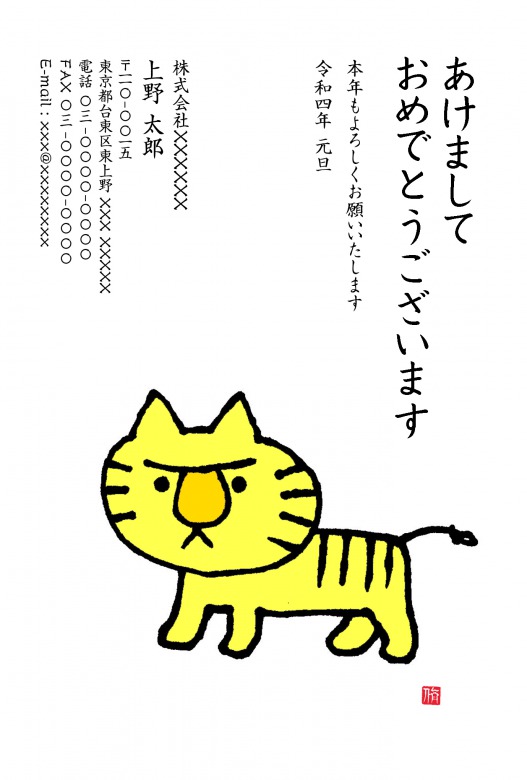 あけまして
おめでとうございます
本年もよろしくお願いいたします
令和四年 元旦
株式会社XXXXXXX
上野 太郎
〒一一〇-〇〇一五
東京都台東区東上野 XXX XXXXX
電話 〇三-〇〇〇〇-〇〇〇〇
FAX 〇三-〇〇〇〇-〇〇〇〇
E-mail : xxx@xxxxxxxx